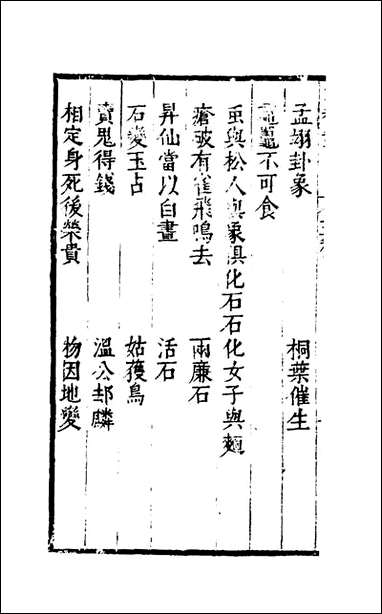 孟翊卦象　桐葉催生
不可食
虫與松人與象俱化石石化女子與麵
瘡破有雀飛鳴去　雨廉石
昇仙當以白晝　活石
石變玉占　姑獲鳥
賣鬼得錢　溫公麟
相定身死後榮貴　物因地變